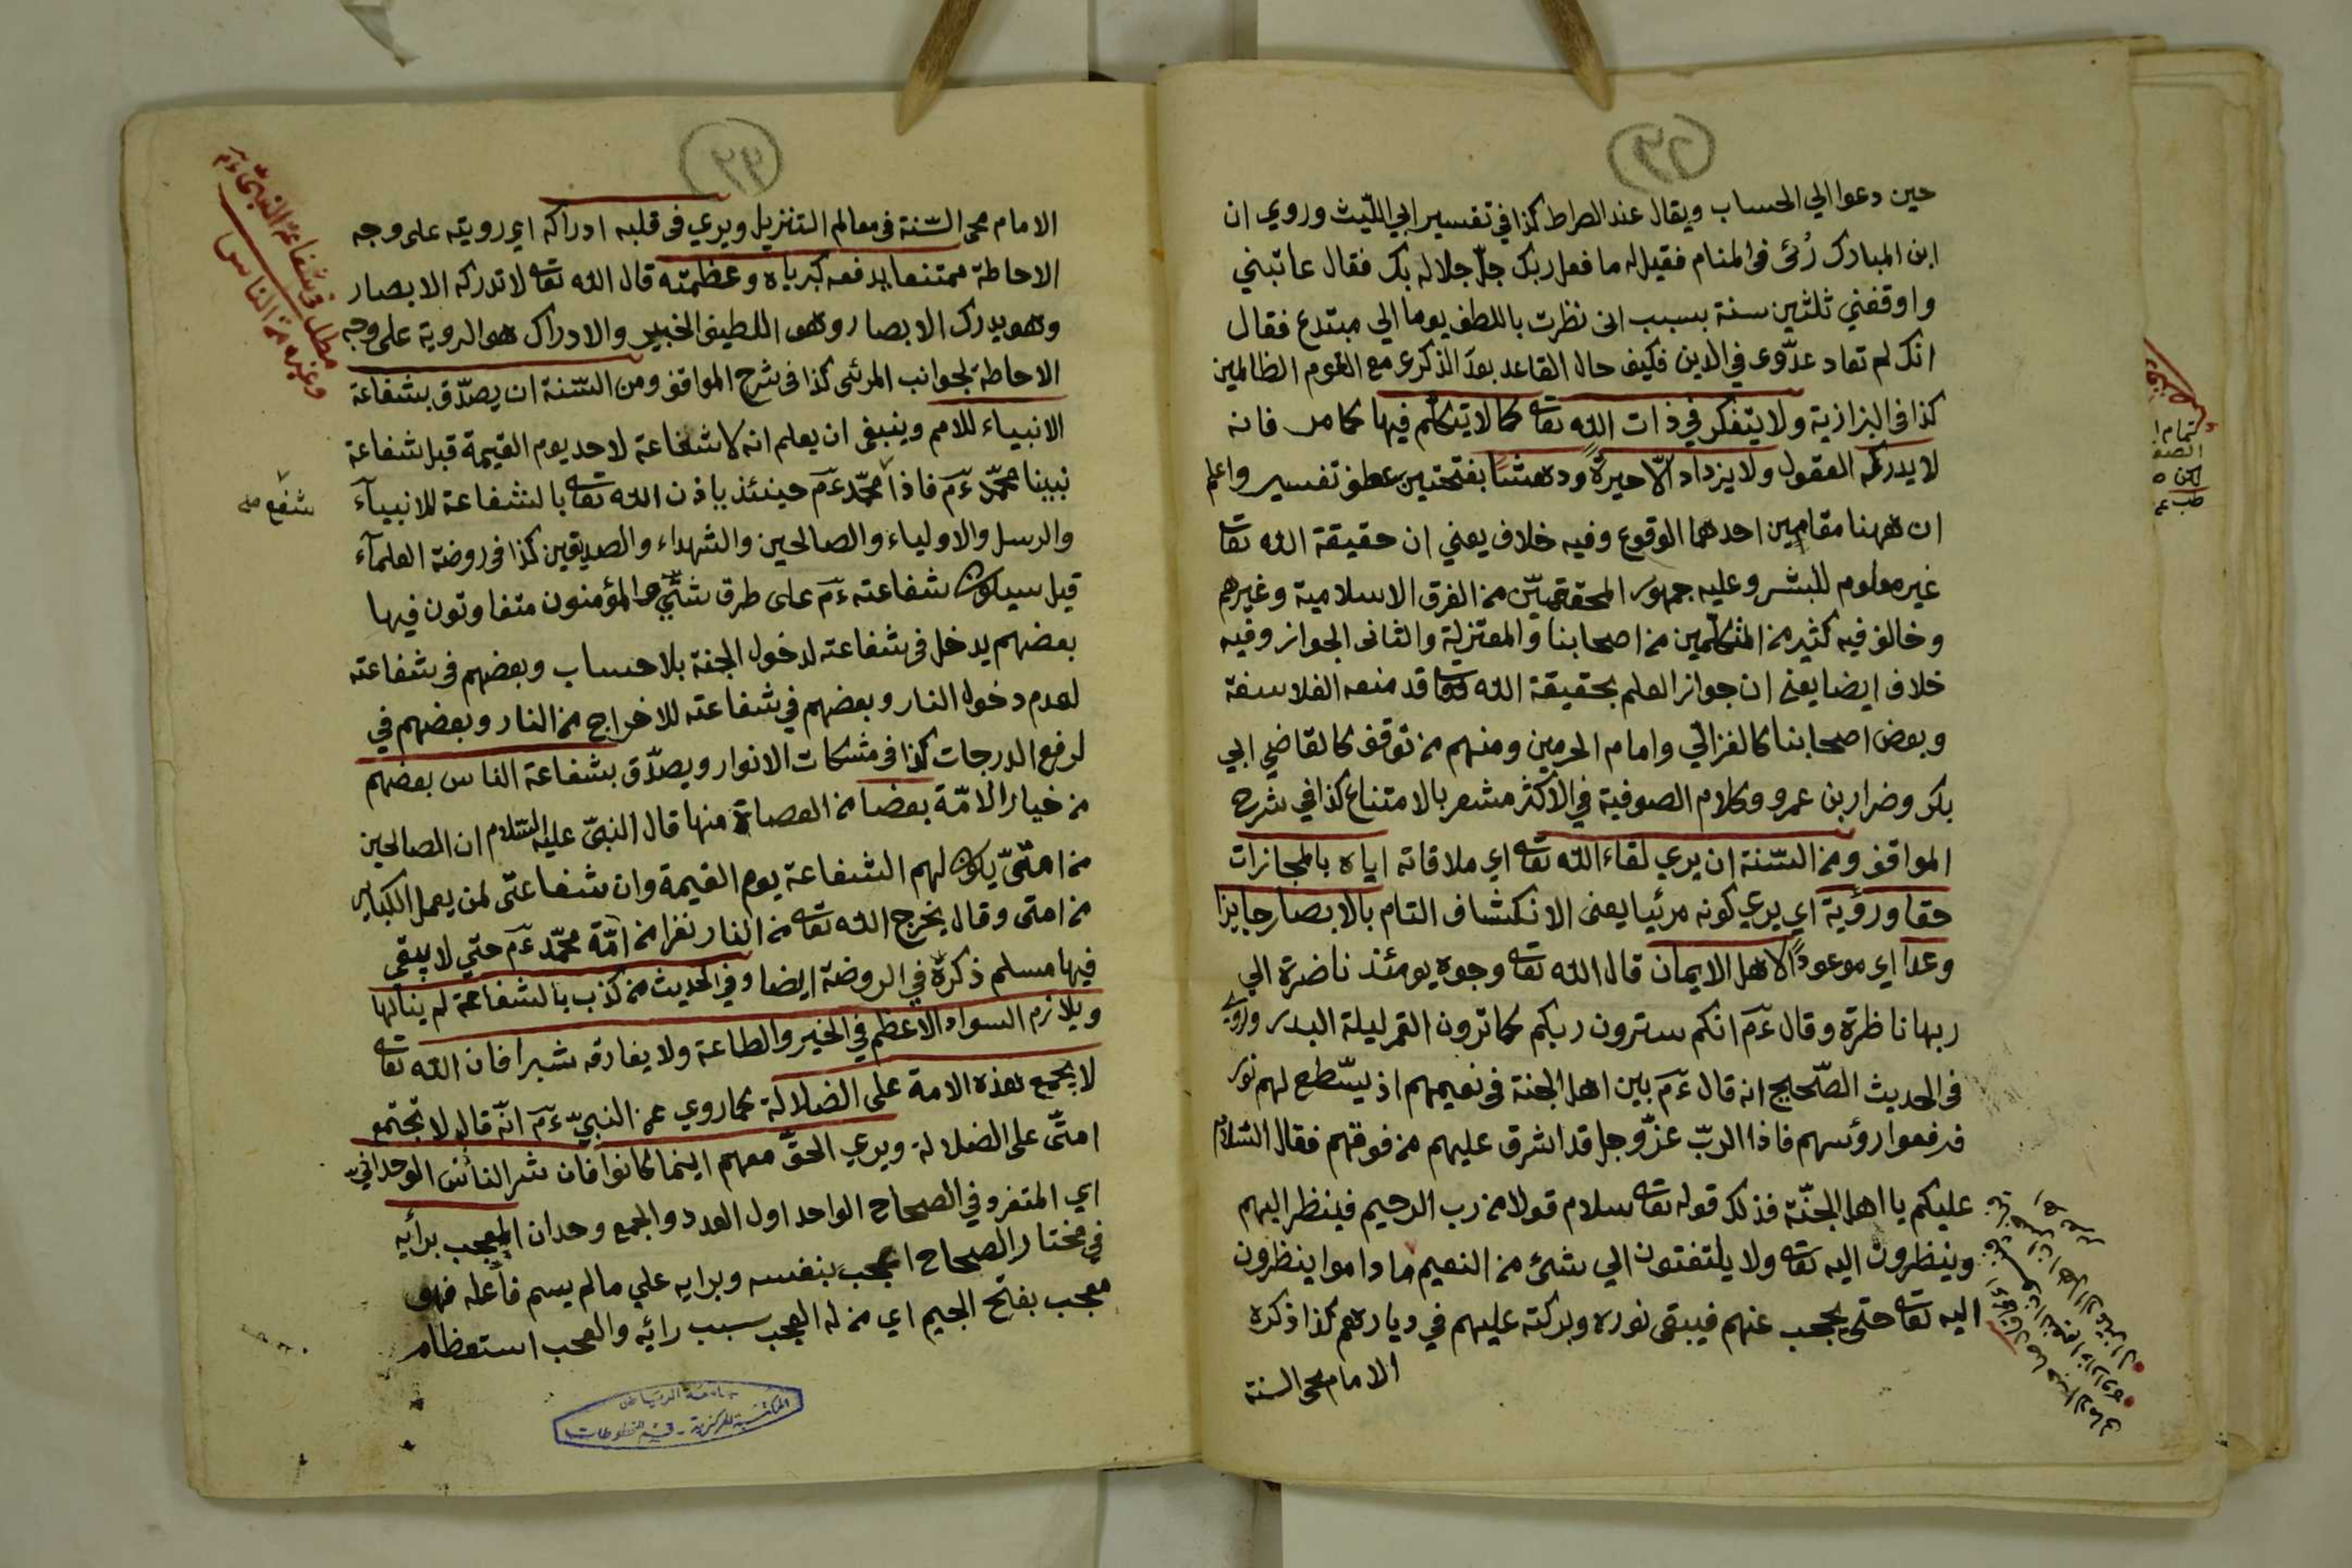 حين دعوا الي الحساب ويقال عند الصراط كذا في تفسير ابي الليّث وروي ان
ابن المبارك رُئى فى المنام فقيل له ما فعل ربك جلّ جلاله بك فقال عاتبني
واوقفني ثلثين سنة بسبب انى نظرت باللطف يوما الي مبتدع فقال
انك لم تعاد عدّوى في الدين فكيف حال القاعد بعد الذكرى مع القوم الظالمين
كذا فى البزازية ولا يتفكر في ذات الله تعا كما لا يتكلم فيها كما مر فانه
لا يدركه العقول ولا يزداد الّا حيرةً ودهشًا بفتحتين عطف تفسير واعلم
ان ههنا مقامين احدهما الوقوع وفيه خلاف يعني ان حقيقة الله تعا
غير معلوم للبشر وعليه جمهور المحققين من الفرق الاسلامية وغيرهم
وخالف فيه كثير من المتكلمين من اصحابنا والمعتزلة والثانى الجواز وفيه
خلاف ايضا يعنى ان جواز العلم بحقيقة الله تعا قد منعه الفلاسفة
وبعض اصحابنا كالغزالي وامام الحرمين ومنهم من توقف كالقاضي ابي
بكر وضرار بن عمرو وكلام الصوفية في الاكثر مشعر بالامتناع كذا في شرح
المواقف ومن السّنة ان يري لقاء الله تعا اي ملاقاته اياه بالمجازات
حقا ورؤية اي يري كونه مرئيا يعنى الانكشاف التام بالابصار جايزا
وعدا اي موعودًا لاهل الايمان قال الله تعا وجوه يومئذ ناضرة الي
ربها ناظرة وقال ءم انكم سترون ربكم كما ترون القمر ليلة البدر وروي
فى الحديث الصّحيح انه قال ءم بين اهل الجنة فى نعيمهم اذ ليسّطع لهم نور
فرفعوا رؤسهم فاذا الربّ عزّوجل قد اشرق عليهم من فوقهم فقال السّلام
عليكم يا اهل الجنّة فذلك قوله تعا سلام قولا من رب الرحيم فينظر اليهم
وينظرون اليه تعا ولا يلتفتون الي شئ من النعيم ما داموا ينظرون
اليه تعا حتى يحجب عنهم فيبقى نوره وبركته عليهم في ديارهم كذا ذكره
الامام محى السنة
الامام محى السّنة فى معالم التنزيل ويري فى قلبه ادراكه اي رويته على وجه
الاحاطة ممتنعا يدفعه كبرياه وعظمته قال الله تعا لا تدركه الابصار
وهو يدرك الابصار وهو اللطيف الخبير والادراك هو الروية على وجه
الاحاطة لجوانب المرئى كذا فى شرح المواقف ومن السّنة ان يصدّق بشفاعة
الانبياء للامم وينبغى ان يعلم انه لا شفاعة لاحد يوم القيمة قبل شفاعة
نبينا محمّد ءم فاذا محمّد ءم حينئذ باذن الله تعا بالشفاعة للانبيآء
شفع صح
والرسل والاولياء والصالحين والشهداء والصديقين كذا فى روضة العلمآء
قيل سيكون شفاعته ءم على طرق شتّي والمؤمنون متفاوتون فيها
بعضهم يدخل فى شفاعته لدخول الجنة بلا حساب وبعضهم فى شفاعته
لعدم دخول النار وبعضهم في شفاعته للاخراج من النار وبعضهم في
لرفع الدرجات كذا فى مشكات الانوار ويصدّق بشفاعة الناس بعضهم
من خيار الامّة بعضا من العصاة منها قال النبىّ عليه السّلام ان الصالحين
من امتىّ يكون لهم الشفاعة يوم القيمة وان شفاعتى لمن يعمل الكباير
من امتى وقال يخرج الله تعا من النار نفرا من امّة محمّد ءم حتي لا يبقى
فيها مسلم ذكرة في الروضة ايضا وفي الحديث من كذب بالشفاعة لم ينالها
ويلازم السواد الاعظم في الخير والطاعة ولا يفارقه شبرا فان الله تعا
لا يجمع هذه الامة على الضلالة كما روي عن النبيّ ءم انّه قال لا تجتمع
امتّى على الضلالة ويري الحقّ معهم اينما كانوا فان شر الناس الوحدانيّ
اي المتفرد في الصحاح الواحد اول العدد والجمع وحدان المعجب برأيه
في مختار الصحاح اعجب بنفسه وبرايه علي ما لم يسم فاعله فهو
معجب بفتح الجيم اي من له العجب سبب رائه والعجب استعظام
مطلب وشفاعة النبىّ ءم
وغيره من الناس
جامعة الرياض
المكتبة المركزية - قسم المخطوطات